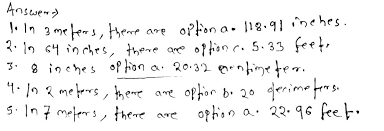 Answers
1. In 3 meters, there are option a. 118.91 inches.
2. In 64 inches, there are option c. 5.33 feet.
3. 8 inches option a. 20.32 centimeter.
4. In 2 meters, there are option b. 20 decimeters.
5. In 7 meters, there are option a. 22.96 feet.